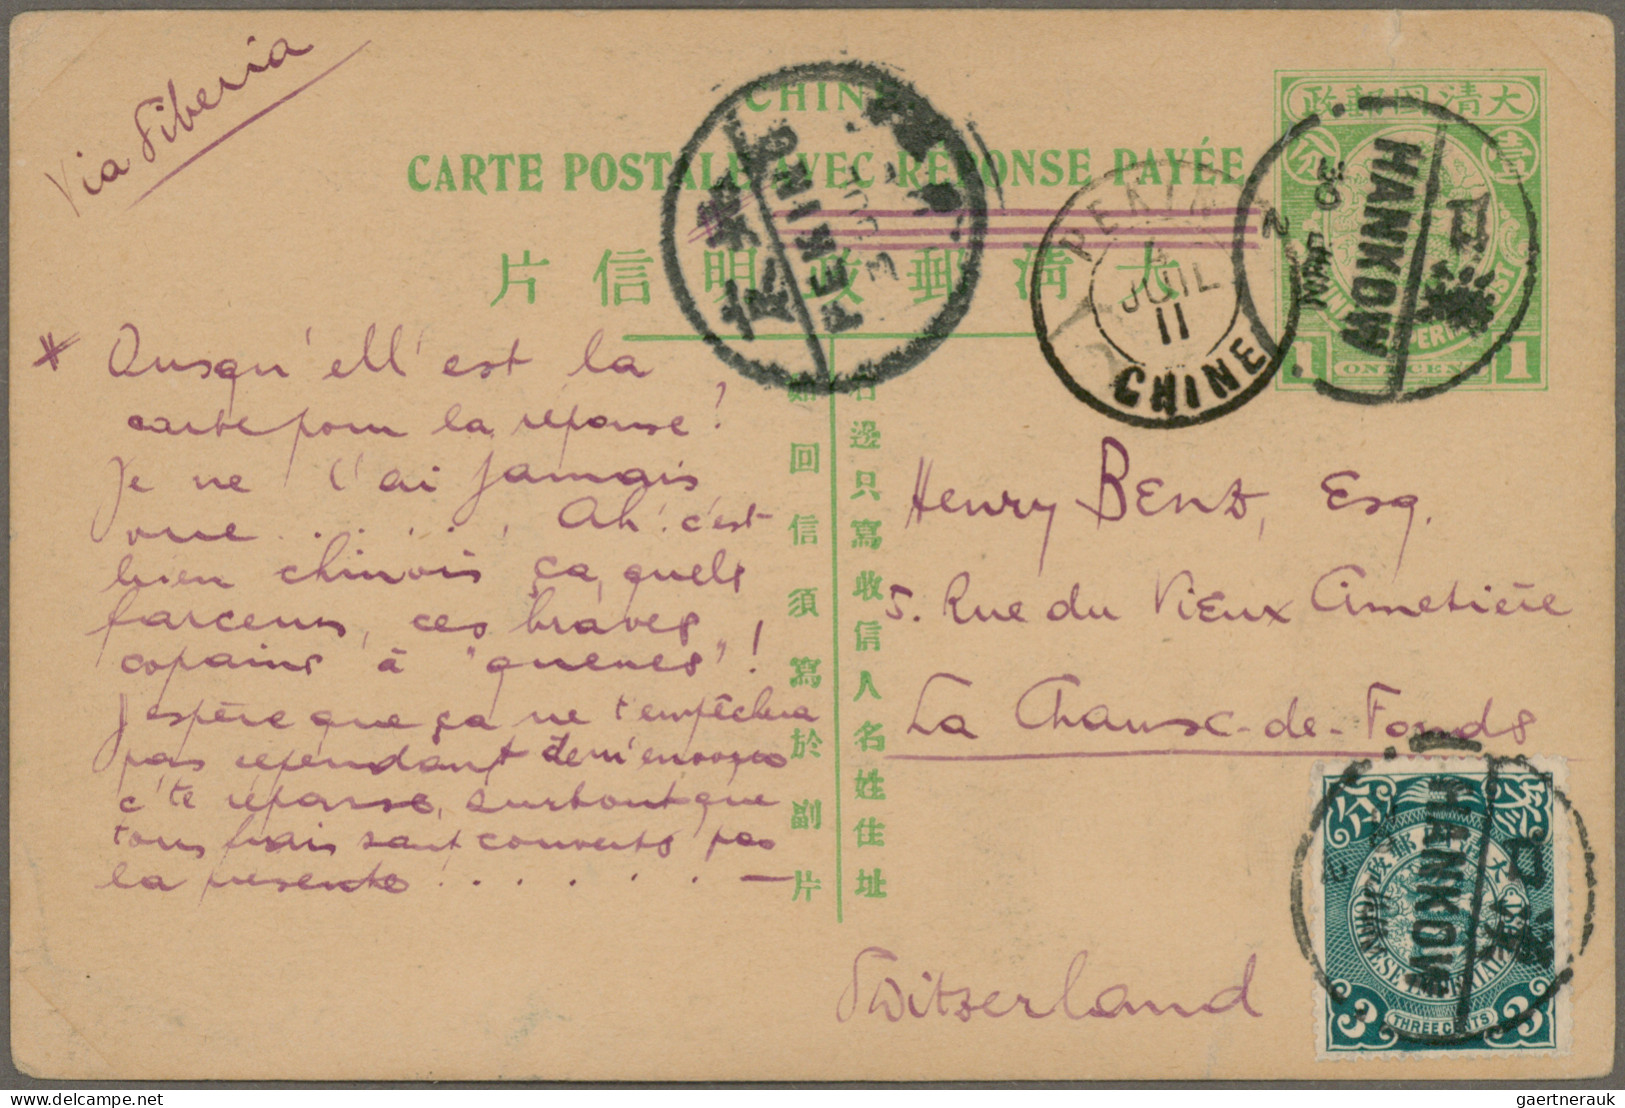 Via Siberia
CHINE
CARTE POSTALE AVEC RÉPONSE PAYÉE
片信明政郵淸大
大清國郵政
壹
分
CHINESE IMPERIAL POST
1 ONE CENT 1
PEKING
京
3 JUL
PEKIN
1
JUIL
11
CHINE
HANKOW
漢口
* Ousqu'ell'est la
carte pour la réponse?
Je ne l'ai jamais
vue . . . . . Ah! c'est
bien chinois ça, quels
farceurs, ces braves
copains à "queues"!
J'espère que ça ne t'empêchera
pas cependant de m'envoyer
c'te réponse, surtout que
tous frais sont couverts par
la présente . . . . . . —
如回信須寫於副片
右邊只寫收信人名姓住址
Henry BEND, Esq.
5. Rue du Vieux Cimetière
La Chaux-de-Fonds
Switzerland
大清國郵政
分
CHINESE IMPERIAL POST
3 THREE CENTS 3
HANKOW
漢口
delcampe.net
gaertnerauk